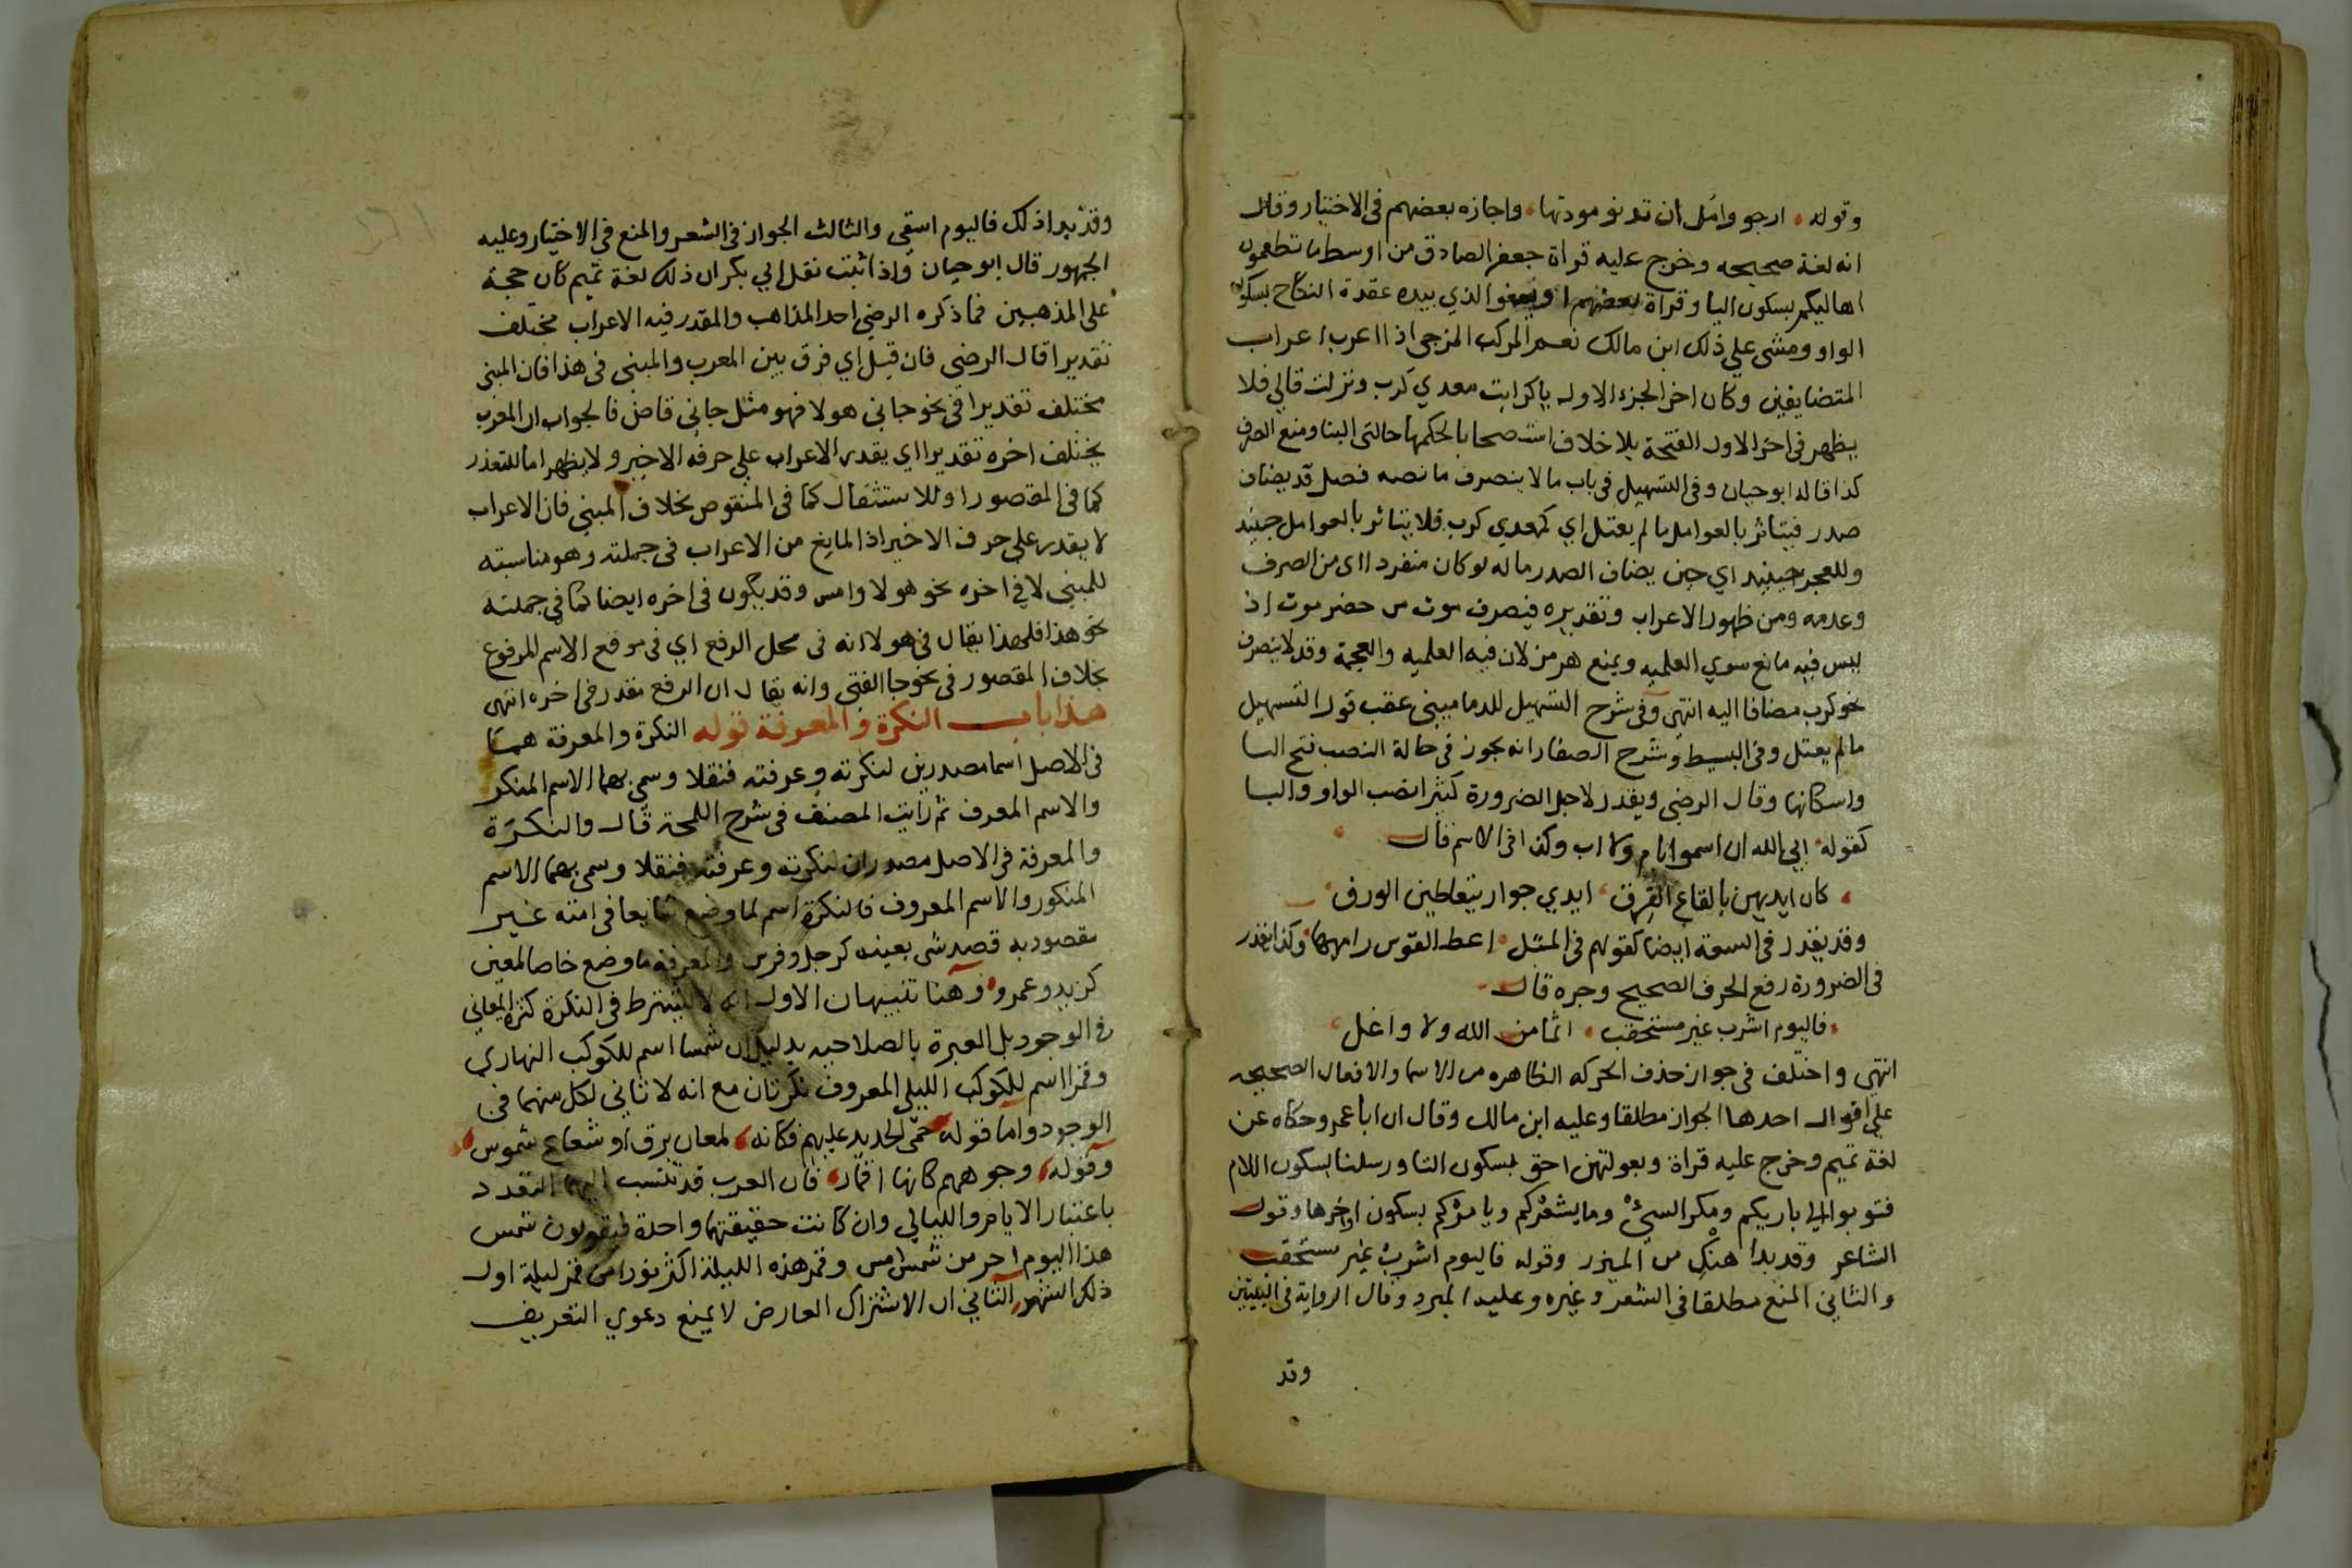 وقوله ارجو وامل ان تدنو مودتها واجازه بعضهم فى الاختيار وقال
انه لغة صحيحه وخرج عليه قراة جعفر الصادق من اوسط ما تطعمون
اهاليكم بسكون اليا وقراة بعضهم او يعفو الذي بيده عقدة النكاح بسكون
الواو ومشى علي ذلك ابن مالك نعم المركب المزجى اذا اعرب اعراب
المتضايفين وكان اخر الجزء الاول ياكرايت معدي كرب ونزلت قالي قلا
يظهر فى اخر الاول الفتحة بلا خلاف استصحابا لحكمها حالتى البنا ومنع الصرف
كذا قاله ابو حيان وفى التسهيل فى باب ما لا ينصرف ما نصه فصل قد يضاف
صدر فيتاثر بالعوامل ما لم يعتل اي كمعدي كرب فلا يتاثر بالعوامل حينيذ
وللعجز حينيذ اي حين يضاف الصدر ماله لو كان منفردا اى من الصرف
وعدمه ومن ظهور الاعراب وتقديره فيصرف موت من حضرموت اذ
ليس فيه مانع سوي العلميه ويمنع هرمز لان فيه العلميه والعجمة وقد لا ينصرف
نحو كرب مضافا اليه انتهى وفى شرح التسهيل للدمامينى عقب قول التسهيل
مالم يعتل وفى البسيط وشرح الصفار انه يجوز فى حالة النصب فتح اليا
واسكانها وقال الرضى ويقدر لاجل الضرورة كثيرا نصب الواو واليا
كقوله ابي الله ان اسموا بام ولا اب وكذا فى الاسم قال
كان ايديهن بالقاع القرق ايدي جوار يتعاطين الورق
وقد يقدر فى السعة ايضا كقولهم فى المثل اعط القوس راميها وكذا يقدر
فى الضرورة رفع الحرف الصحيح وجره قال
فاليوم اشرب غير مستحقب اثما من الله ولا واغل
انتهى واختلف فى جواز حذف الحركه الظاهره من الاسما والافعال الصحيحه
علي اقوال احدها الجواز مطلقا وعليه ابن مالك وقال ان ابا عمرو حكاه عن
لغة تميم وخرج عليه قراة وبعولتهن احق بسكون التا ورسلنا بسكون اللام
فتوبوا الي باريكم ومكر السيئ وما يشعركم ويامركم بسكون اواخرها وقول
الشاعر وقد بدا هنك من الميزر وقوله فاليوم اشرب غير مستحقب
والثاني المنع مطلقا فى الشعر وغيره وعليه المبرد وقال الرواية فى البيتين
وقد
وقد بدا ذلك فاليوم اسقى والثالث الجواز فى الشعر والمنع فى الاختيار وعليه
الجمهور قال ابو حيان واذا ثبت نقل ابي بكر ان ذلك لغة تميم كان حجة
على المذهبين فما ذكره الرضى احد المذاهب والمقدر فيه الاعراب مختلف
تقديرا قال الرضى فان قيل اي فرق بين المعرب والمبنى فى هذا فان المبنى
مختلف تقديرا فى نحو جاني هولا فهو مثل جانى قاض فالجواب ان المعرب
يختلف اخره تقديرا اي يقدر الاعراب على حرفه الاخير ولا يظهر اما للتعذر
كما فى المقصور او للاستثقال كما فى المنقوص بخلاف المبني فان الاعراب
لا يقدر على حرف الاخير اذ المانع من الاعراب فى جملته وهو مناسبته
للمبنى لا في اخره نحو هولا وامس وقد يكون فى اخره ايضا كما في جملته
نحو هذا فلهذا يقال في هولا انه فى محل الرفع اي فى موقع الاسم المرفوع
بخلاف المقصور فى نحو جا الفتى وانه يقال ان الرفع مقدر فى اخره انتهى
هذا باب النكرة والمعرفة قوله النكرة والمعرفة هما
فى الاصل اسما مصدرين لنكرته وعرفته فنقلا وسمى بهما الاسم المنكر
والاسم المعرف ثم رايت المصنف فى شرح اللمحة قال والنكرة
والمعرفة فى الاصل مصدران لنكرته وعرفته فنقلا وسمى بهما الاسم
المنكور والاسم المعروف فالنكرة اسم لما وضع شايعا فى امته غير
مقصود به قصد شى بعينه كرجل وفرس والمعرفة ما وضع خاصا لمعين
كزيد وعمرو وهنا تنبيهان الاول انه لا يشترط فى النكرة كثرة المعاني
فى الوجود بل العبرة بالصلاحيه بدليل ان شمسا اسم للكوكب النهاري
وقمرا اسم للكوكب الليلى المعروف نكرتان مع انه لا ثاني لكل منهما فى
الوجود واما قوله حمى الحديد عليهم فكانه لمعان برق او شعاع شموس
وقوله وجوههم كانها اقمار فان العرب قد تنسب اليهما التعدد
باعتبار الايام والليالي وان كانت حقيقتهما واحدة فيقولون شمس
هذا اليوم احر من شمس امس وقمر هذه الليلة اكثر نورا من قمر ليلة اول
ذلك الشهر الثاني ان الاشتراك العارض لا يمنع دعوي التعريف